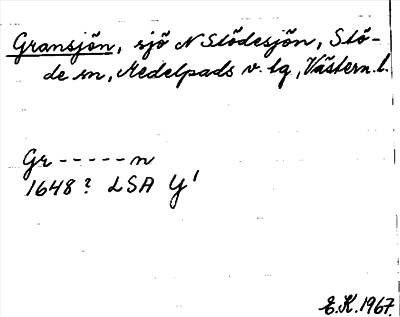 Gransjön, sjö N Stödesjön, Stö-
de sn, Medelpads v. tg, Västern.l.
Gr-----n
1648? LSA Y1
E.K.1967.